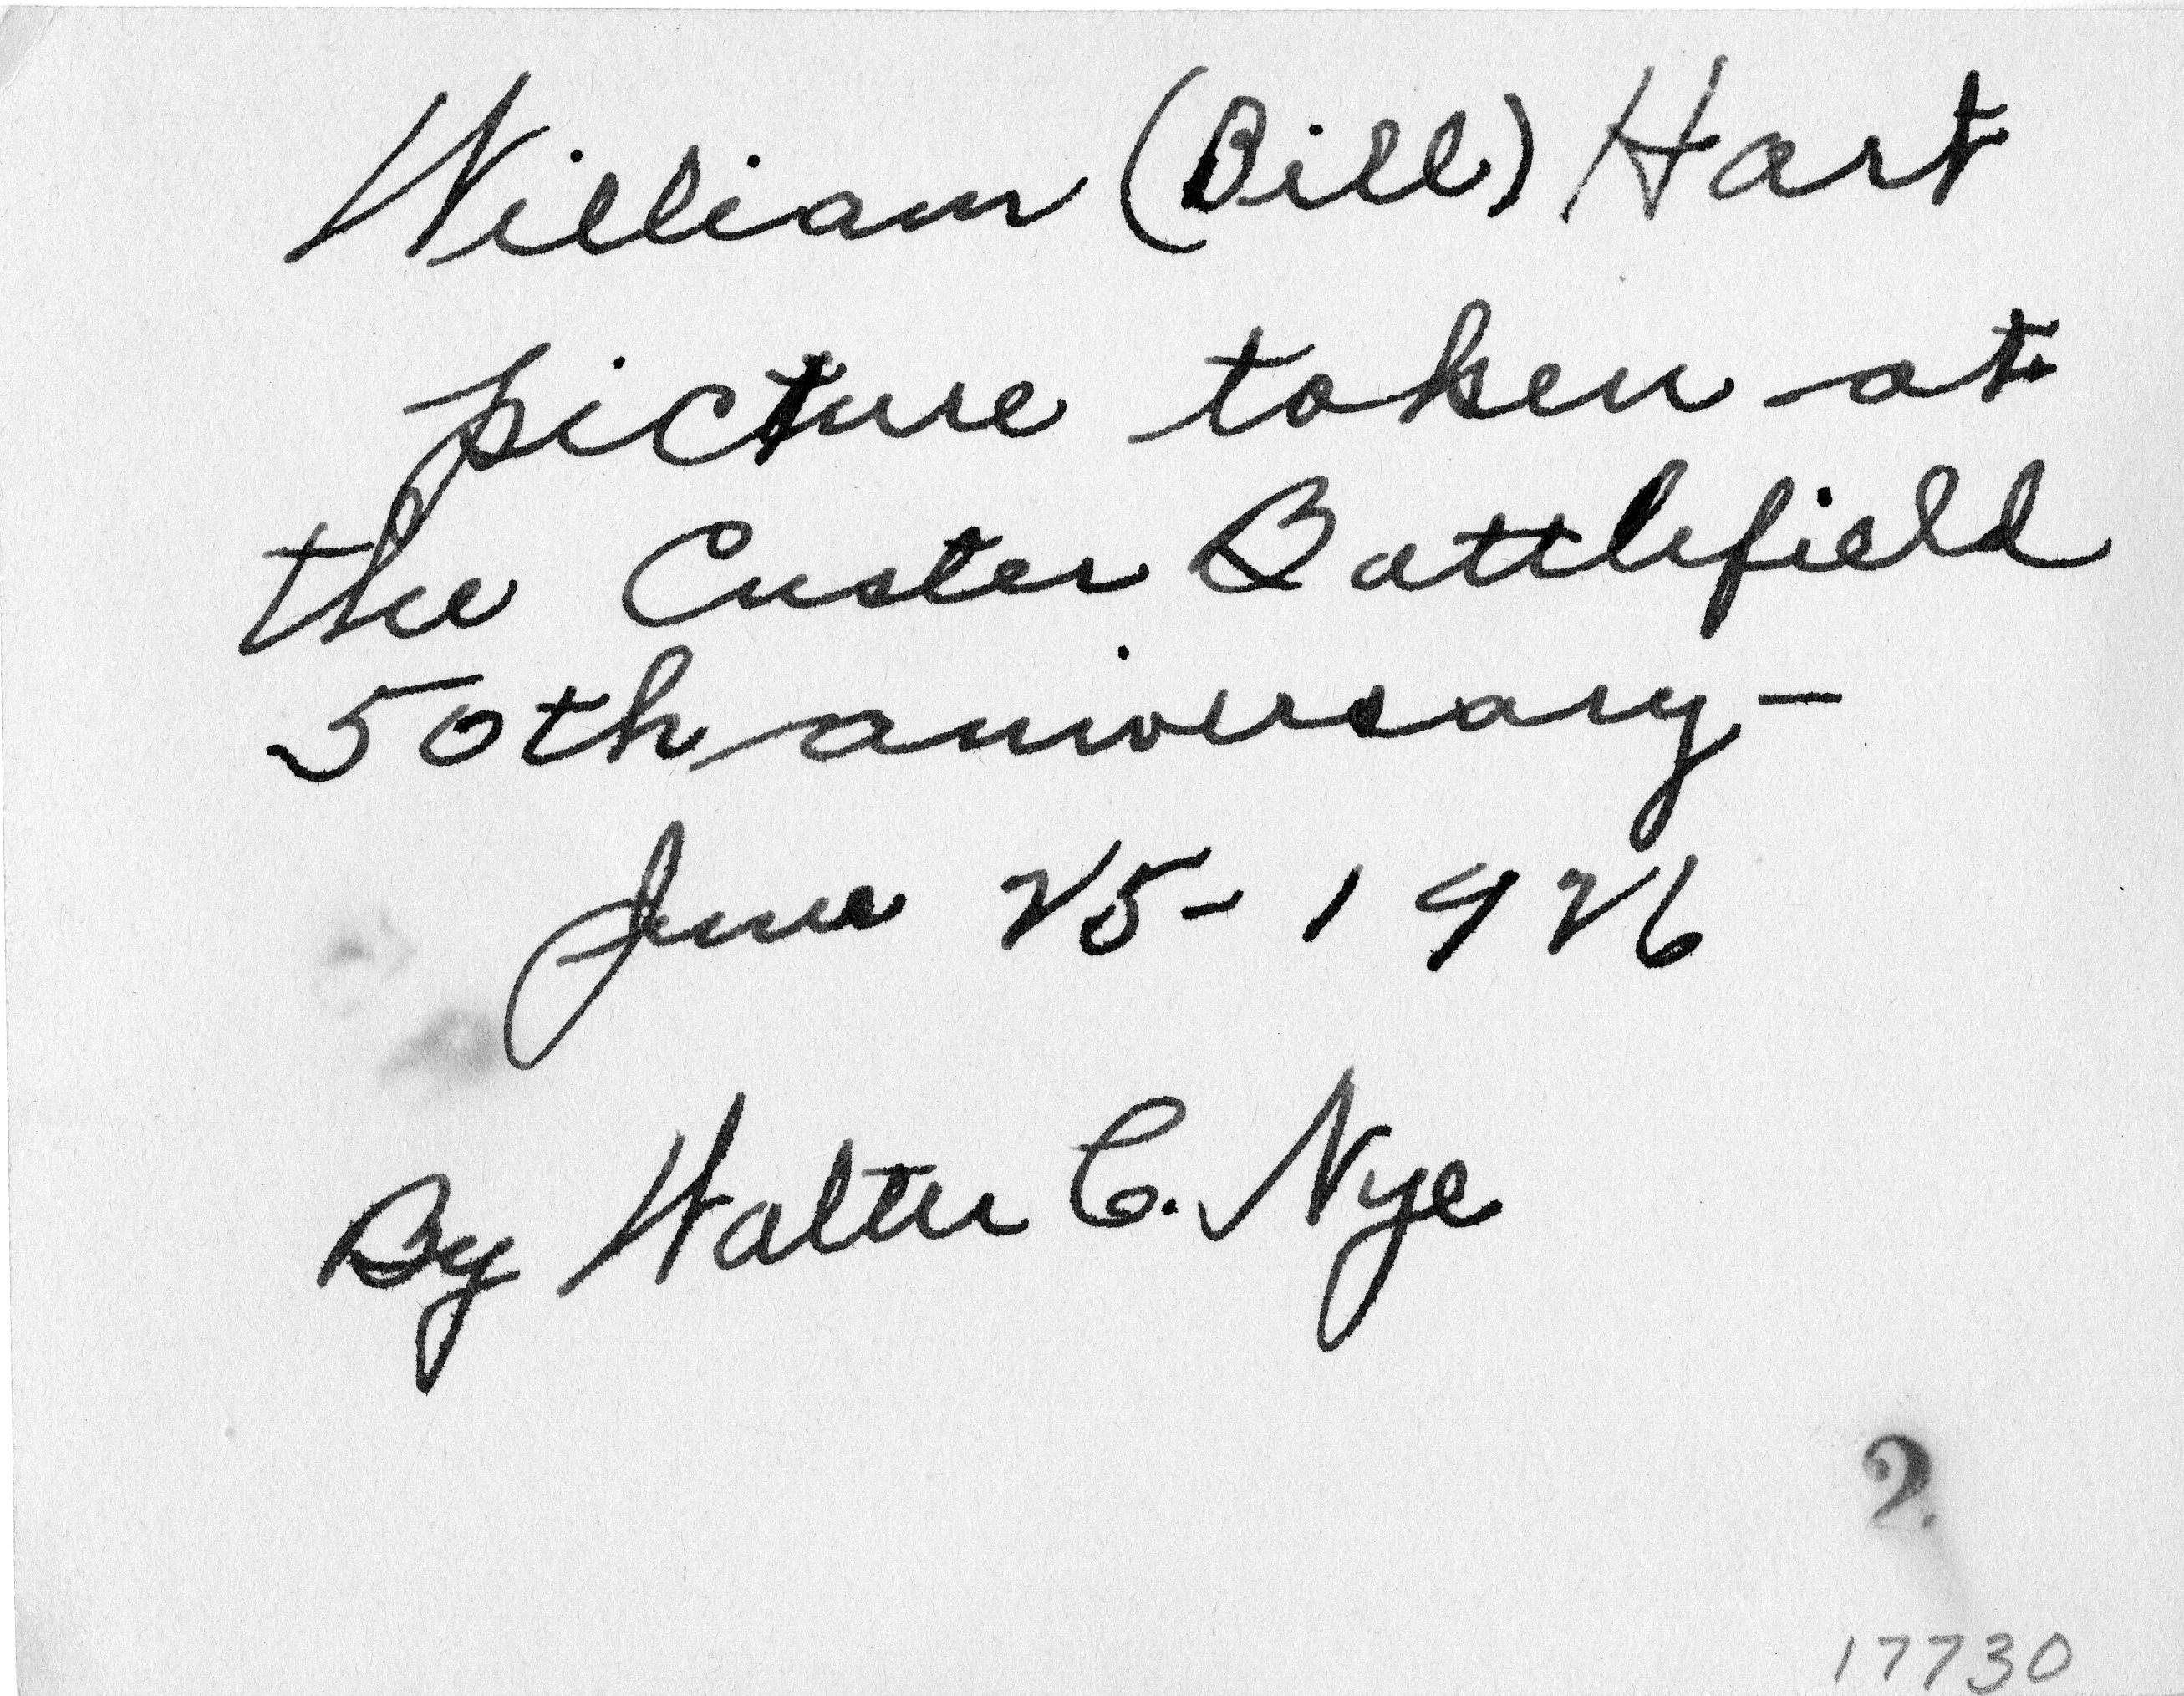 William (Bill) Hart
picture taken at
the Custer Battlefield
50th aniversary-
June 25- 1926
By Walter C. Nye
2.
17730